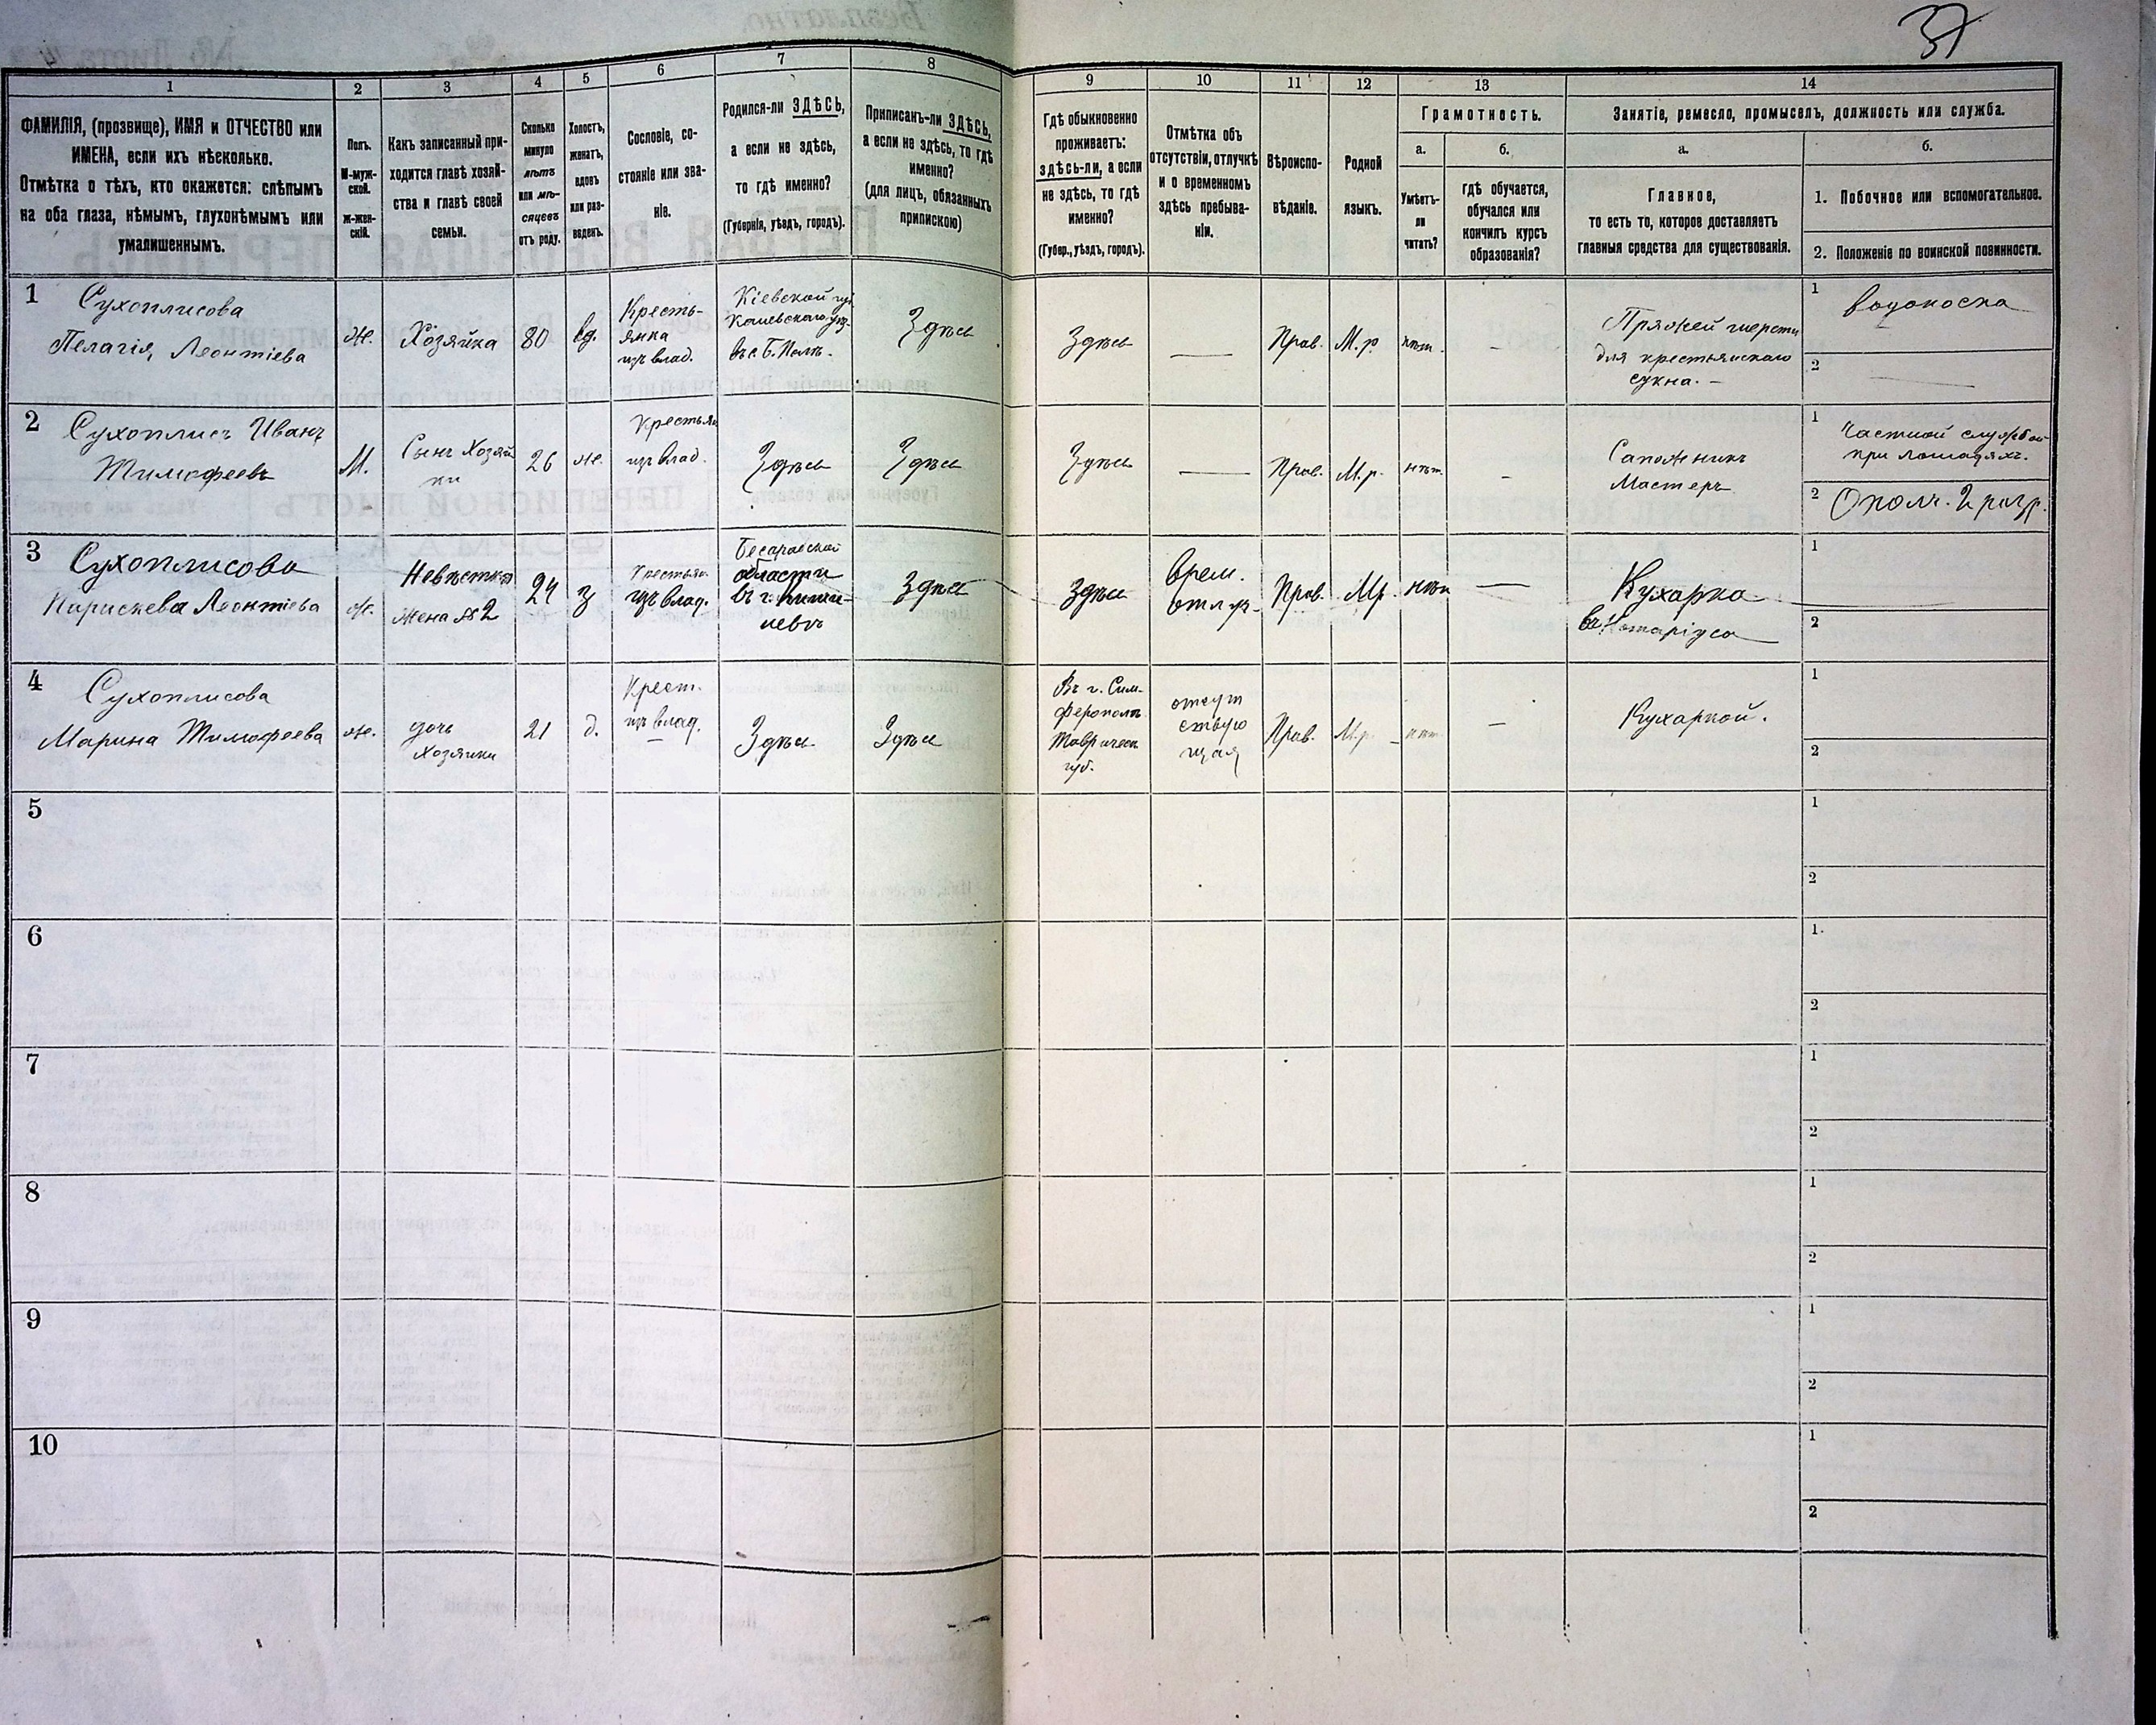 37
1
2
3
4
5
6
7
8
9
10
11
12
13
14
ФАМИЛІЯ, (прозвище), ИМЯ и ОТЧЕСТВО или
ИМЕНА, если ихъ нѣсколько.
Отмѣтка о тѣхъ, кто окажется: слѣпымъ
на оба глаза, нѣмымъ, глухонѣмымъ или
умалишеннымъ.
Полъ.
М-муж-
ской.
ж-жен-
скій.
Какъ записанный при-
ходится главѣ хозяй-
ства и главѣ своей
семьи.
Сколько
минуло
лѣтъ
или мѣ-
сяцевъ
отъ роду.
Холостъ,
женатъ,
вдовъ
или раз-
веденъ.
Сословіе, со-
стояніе или зва-
ніе.
Родился-ли ЗДѢСЬ,
а если не здѣсь,
то гдѣ именно?
(Губернія, уѣздъ, городъ).
Приписанъ-ли ЗДѢСЬ,
а если не здѣсь, то гдѣ
именно?
(для лицъ, обязанныхъ
припискою)
Гдѣ обыкновенно
проживаетъ:
здѣсь-ли, а если
не здѣсь, то гдѣ
именно?
(Губер., уѣздъ, городъ).
Отмѣтка объ
отсутствіи, отлучкѣ
и о временномъ
здѣсь пребыва-
ніи.
Вѣроиспо-
вѣданіе.
Родной
языкъ.
Грамотность.
а.
Умѣетъ-
ли
читать?
б.
гдѣ обучается,
обучался или
кончилъ курсъ
образованія?
Занятіе, ремесло, промыселъ, должность или служба.
а.
Главное,
то есть то, которое доставляетъ
главныя средства для существованія.
б.
1. Побочное или вспомогательное.
2. Положеніе по воинской повинности.
1
Сухоплисова
Пелагія, Леонтіева
Ж.
Хозяйка
80
вд.
Кресть-
янка
изъ влад.
Кіевской гу
Каневскаго уѣз.
въ с.
Здѣсь
Здѣсь
—
Прав.
М.р.
нѣт.
-
Пряжей шерсти
для крестьянскаго
сукна. —
1
водоноска
2
2
Сухоплисъ Иванъ
Тимофеевъ
М.
Сынъ Хозяй
ки
26
ж.
Крестьян
изъ влад.
Здѣсь
Здѣсь
Здѣсь
—
Прав.
М.р.
нѣт.
-
Сапожникъ
Мастеръ
1
Частной службой
при лошадяхъ.
2
Ополч. 2 разр.
3
Сухоплисова
Параскева Леонтіева
ж.
Невѣстка
Жена № 2
24
з
Крестьян.
изъ влад.
Бесарабской
области
въ г. Киши-
невѣ
Здѣсь
Здѣсь
Врем.
отлуч.
Прав.
Мр.
нѣт
—
Кухарка
въ Нотаріуса
1
2
4
Сухоплисова
Марина Тимофеева
ж.
дочь
Хозяйки
21
д.
Крест.
изъ влад.
Здѣсь
Здѣсь
Въ г. Сим-
ферополѣ
Таврическ
губ.
отсут
ствую
щая
Прав.
М.р.
нѣт
—
Кухаркой.
1
2
5
1
2
6
1.
2
7
1
2
8
1
2
9
1
2
10
1
2